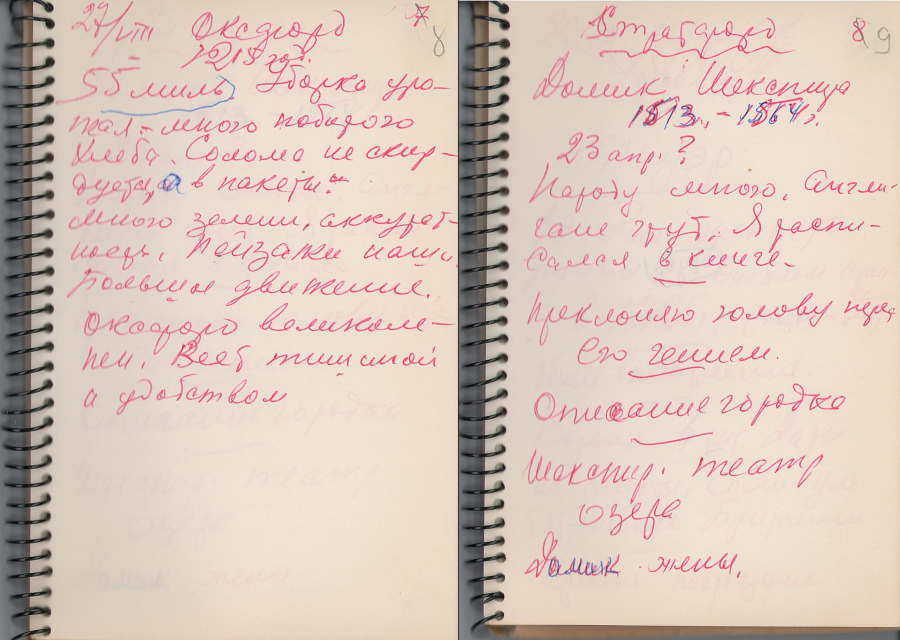 27/VIII Оксфорд 7
8
1215 год.
55 миль. Уборка уро-
жая – много побитого
хлеба. Солома не скир-
дуется, а в пакеты.
много зелени, аккурат-
ность. Пейзажи наши.
Большое движение.
Оксфорд великоле-
пен. Веет тишиной
и удобством
Стратфорд 8 9
Домик Шекспира
1513 г. – 1564 г.
23 апр. ?
Народу много. Англи-
чане чтут. Я распи-
сался в книге.
Преклоняю голову перед
его гением.
Описание городка
Шекспир. театр
озера
Домик жены.